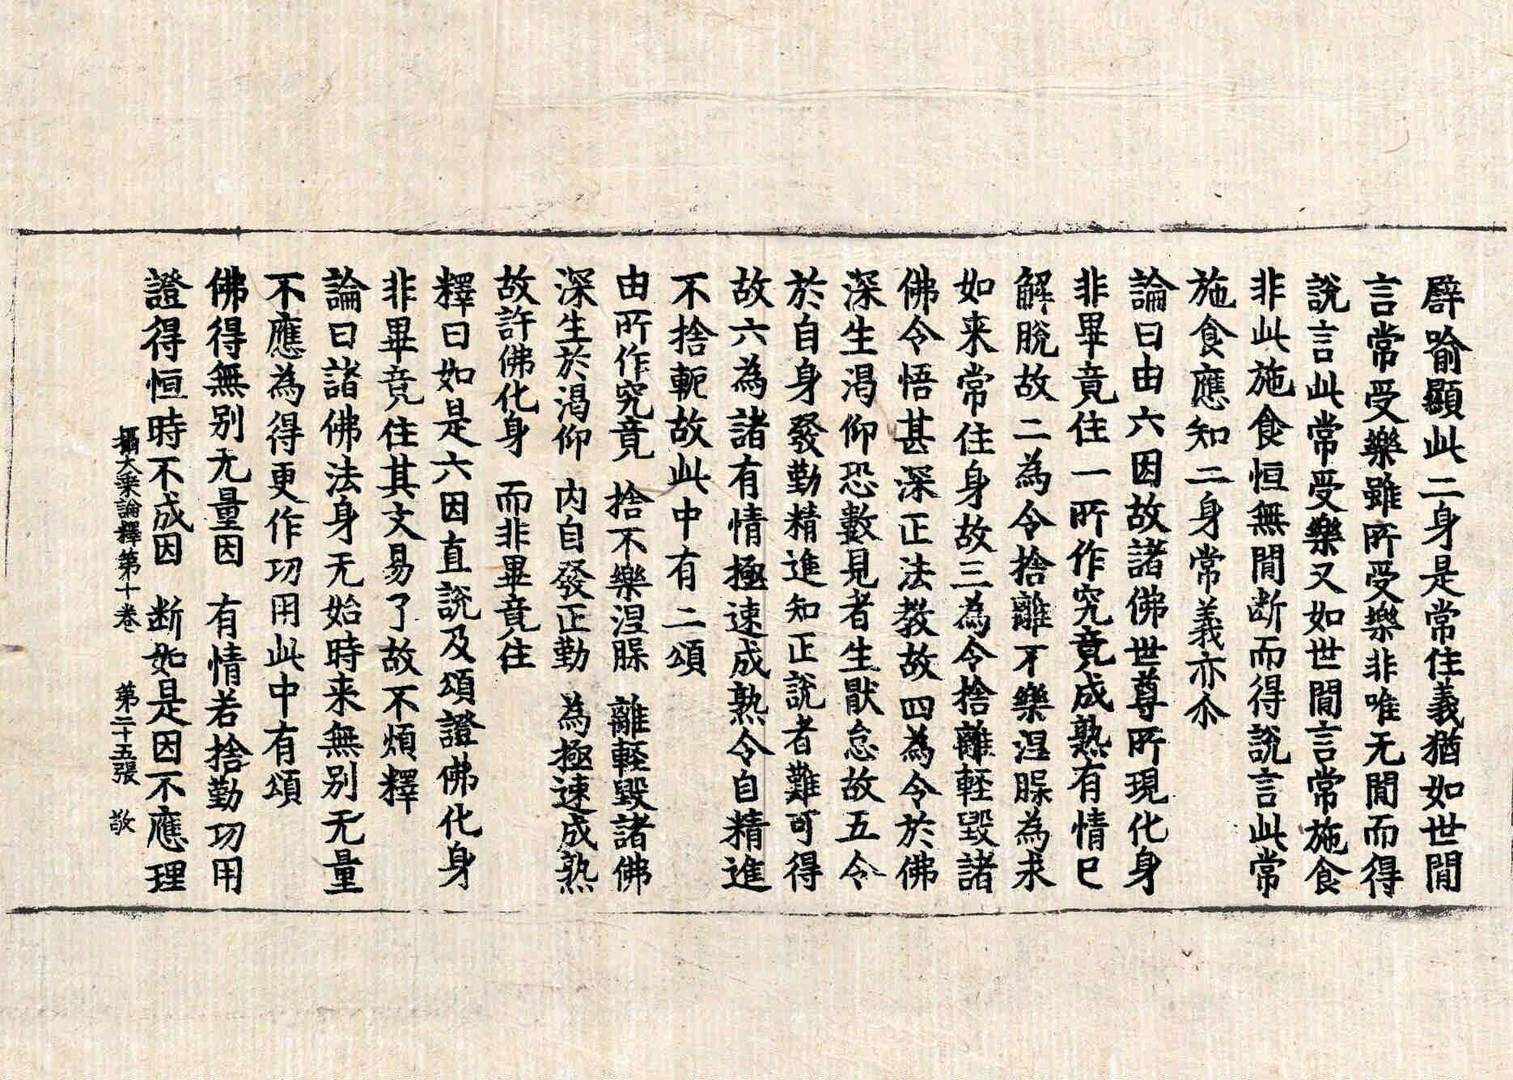 譬喻顯此二身是常住義猶如世間
言常受樂雖所受樂非唯无間而得
說言此常受樂又如世間言常施食
非此施食恒無間断而得說言此常
施食應知二身常義亦尒
論曰由六因故諸佛世尊所現化身
非畢竟住一所作究竟成熟有情已
解脫故二為令捨離不樂涅槃為求
如来常住身故三為令捨離輕毀諸
佛令悟甚深正法教故四為令於佛
深生渴仰恐數見者生猒怠故五令
於自身發勤精進知正說者難可得
故六為諸有情極速成熟令自精進
不捨軛故此中有二頌
由所作究竟　捨不樂涅槃　離輕毀諸佛
深生於渴仰　內自發正勤　為極速成熟
故許佛化身　而非畢竟住
釋曰如是六因直說及頌證佛化身
非畢竟住其文易了故不煩釋
論曰諸佛法身无始時来無別无量
不應為得更作功用此中有頌
佛得無別无量因　有情若捨勤功用
證得恒時不成因　断如是因不應理
攝大乘論釋第十卷　第二十五張　敬